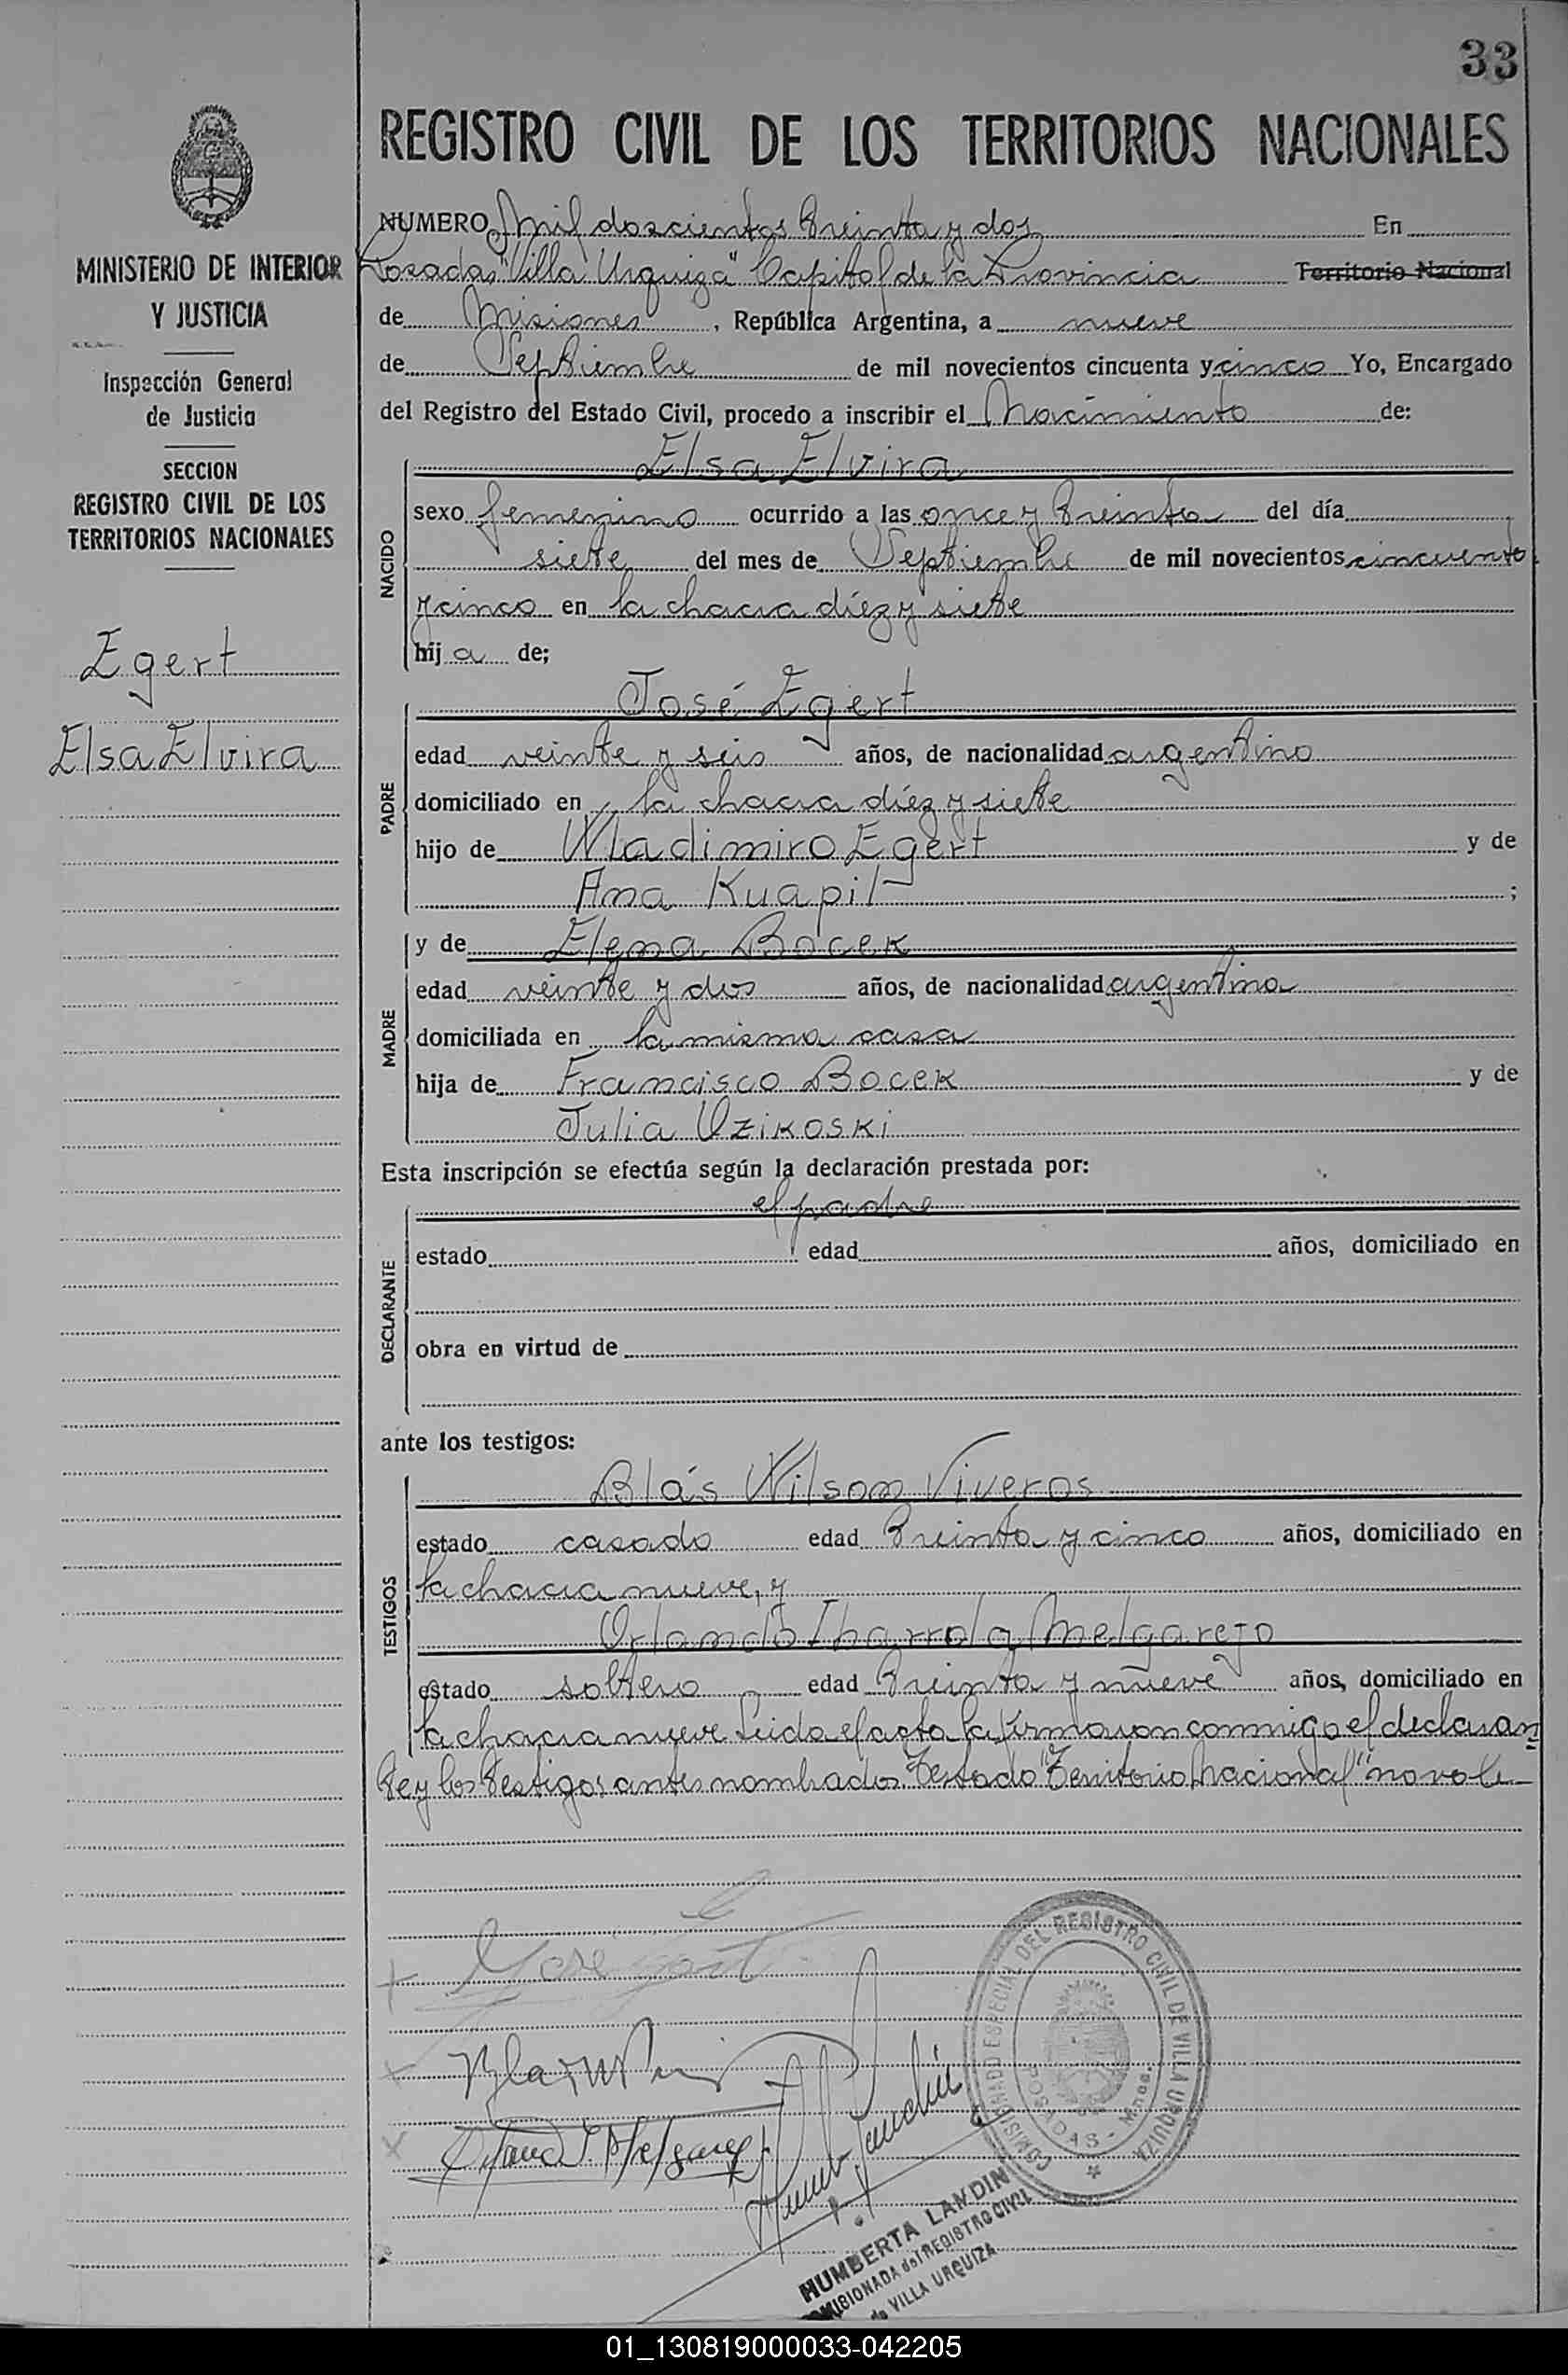 33
REGISTRO CIVIL DE LOS TERRITORIOS NACIONALES
MINISTERIO DE INTERIOR
Y JUSTICIA
Inspección General
de Justicia
SECCION
REGISTRO CIVIL DE LOS
TERRITORIOS NACIONALES
Egert
Elsa Elvira
NUMERO Mil doscientos treinta y dos En
Posadas "Villa Urquiza" Capital de la Provincia Territorio Nacional
de Misiones, República Argentina, a nueve
de Septiembre de mil novecientos cincuenta y cinco Yo, Encargado
del Registro del Estado Civil, procedo a inscribir el Nacimiento de:
NACIDO
Elsa Elvira
sexo femenino ocurrido a las once y treinta del día
siete del mes de Septiembre de mil novecientos cincuenta
y cinco en la chacra diez y siete
hija de;
PADRE
José Egert
edad veinte y seis años, de nacionalidad argentino
domiciliado en la chacra diez y siete
hijo de Wladimiro Egert y de
Ana Kuapil;
MADRE
y de Elena Bocek
edad veinte y dos años, de nacionalidad argentina
domiciliada en la misma casa
hija de Francisco Bocek y de
Julia Uzikoski
Esta inscripción se efectúa según la declaración prestada por:
DECLARANTE
el padre
estado edad años, domiciliado en
obra en virtud de
ante los testigos:
TESTIGOS
Blás Wilson Viveros
estado casado edad treinta y cinco años, domiciliado en
la chacra nueve, y
Orlando Ibarrola Melgarejo
estado soltero edad treinta y nueve años, domiciliado en
la chacra nueve Leida el acta la firmaron conmigo el declaran
te y los testigos antes nombrados. Testado "Territorio Nacional" no vale
José Egert
Orland I. Melgarejo
COMISIONADO ESPECIAL DEL REGISTRO CIVIL DE VILLA URQUIZA
POSADAS - Mnes.
HUMBERTA LANDIN
COMISIONADA del REGISTRO CIVIL
de VILLA URQUIZA
01_130819000033-042205